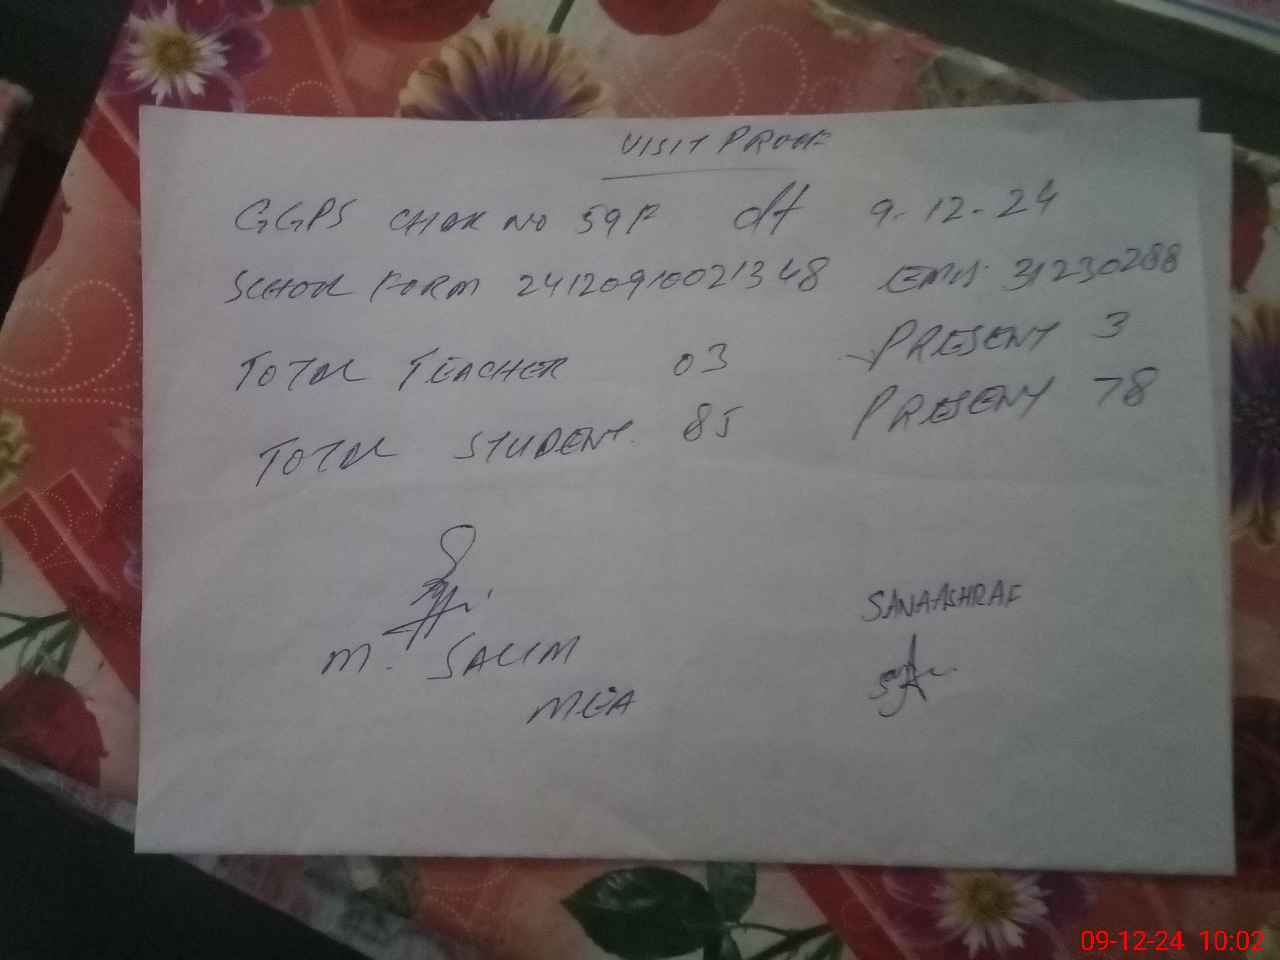 VISIT PROOF
GGPS CHAK NO 59P dt 9-12-24
SCHOOL FORM 24120910021348 EMIS 31230288
TOTAL TEACHER 03 PRESENT 3
TOTAL STUDENT. 85 PRESENT 78
SANA ASHRAF
M. SALIM
MEA
09-12-24 10:02